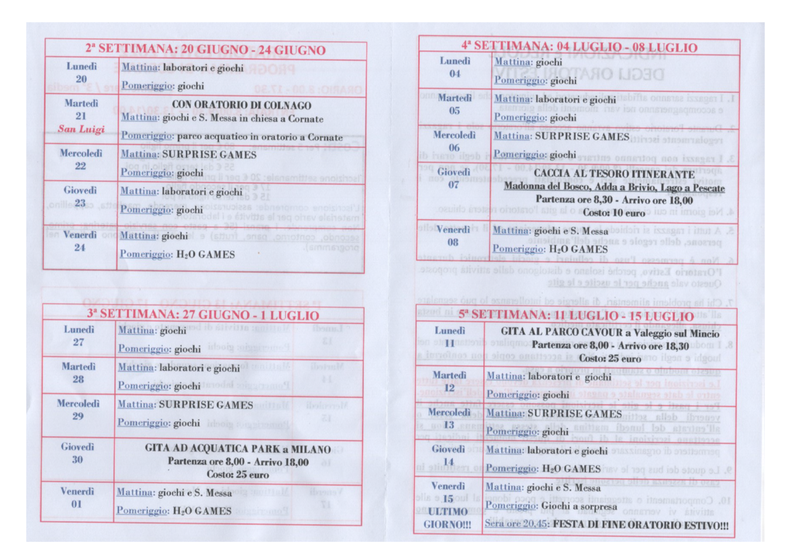 2ª SETTIMANA: 20 GIUGNO - 24 GIUGNO
Lunedì
20
Mattina: laboratori e giochi
Pomeriggio: giochi
Martedì
21
San Luigi
CON ORATORIO DI COLNAGO
Mattina: giochi e S. Messa in chiesa a Cornate
Pomeriggio: parco acquatico in oratorio a Cornate
Mercoledì
22
Mattina: SURPRISE GAMES
Pomeriggio: giochi
Giovedì
23
Mattina: laboratori e giochi
Pomeriggio: giochi
Venerdì
24
Mattina: giochi
Pomeriggio: H₂O GAMES
3ª SETTIMANA: 27 GIUGNO - 1 LUGLIO
Lunedì
27
Mattina: giochi
Pomeriggio: giochi
Martedì
28
Mattina: laboratori e giochi
Pomeriggio: giochi
Mercoledì
29
Mattina: SURPRISE GAMES
Pomeriggio: giochi
Giovedì
30
GITA AD ACQUATICA PARK a MILANO
Partenza ore 8,00 - Arrivo 18,00
Costo: 25 euro
Venerdì
01
Mattina: giochi e S. Messa
Pomeriggio: H₂O GAMES
4ª SETTIMANA: 04 LUGLIO - 08 LUGLIO
Lunedì
04
Mattina: giochi
Pomeriggio: giochi
Martedì
05
Mattina: laboratori e giochi
Pomeriggio: giochi
Mercoledì
06
Mattina: SURPRISE GAMES
Pomeriggio: giochi
Giovedì
07
CACCIA AL TESORO ITINERANTE
Madonna del Bosco, Adda a Brivio, Lago a Pescate
Partenza ore 8,30 - Arrivo ore 18,00
Costo: 10 euro
Venerdì
08
Mattina: giochi e S. Messa
Pomeriggio: H₂O GAMES
5ª SETTIMANA: 11 LUGLIO - 15 LUGLIO
Lunedì
11
GITA AL PARCO CAVOUR a Valeggio sul Mincio
Partenza ore 8,00 - Arrivo ore 18,30
Costo: 25 euro
Martedì
12
Mattina: laboratori e giochi
Pomeriggio: giochi
Mercoledì
13
Mattina: SURPRISE GAMES
Pomeriggio: giochi
Giovedì
14
Mattina: laboratori e giochi
Pomeriggio: H₂O GAMES
Venerdì
15
ULTIMO
GIORNO!!!
Mattina: giochi e S. Messa
Pomeriggio: Giochi a sorpresa
Sera ore 20.45: FESTA DI FINE ORATORIO ESTIVO!!!